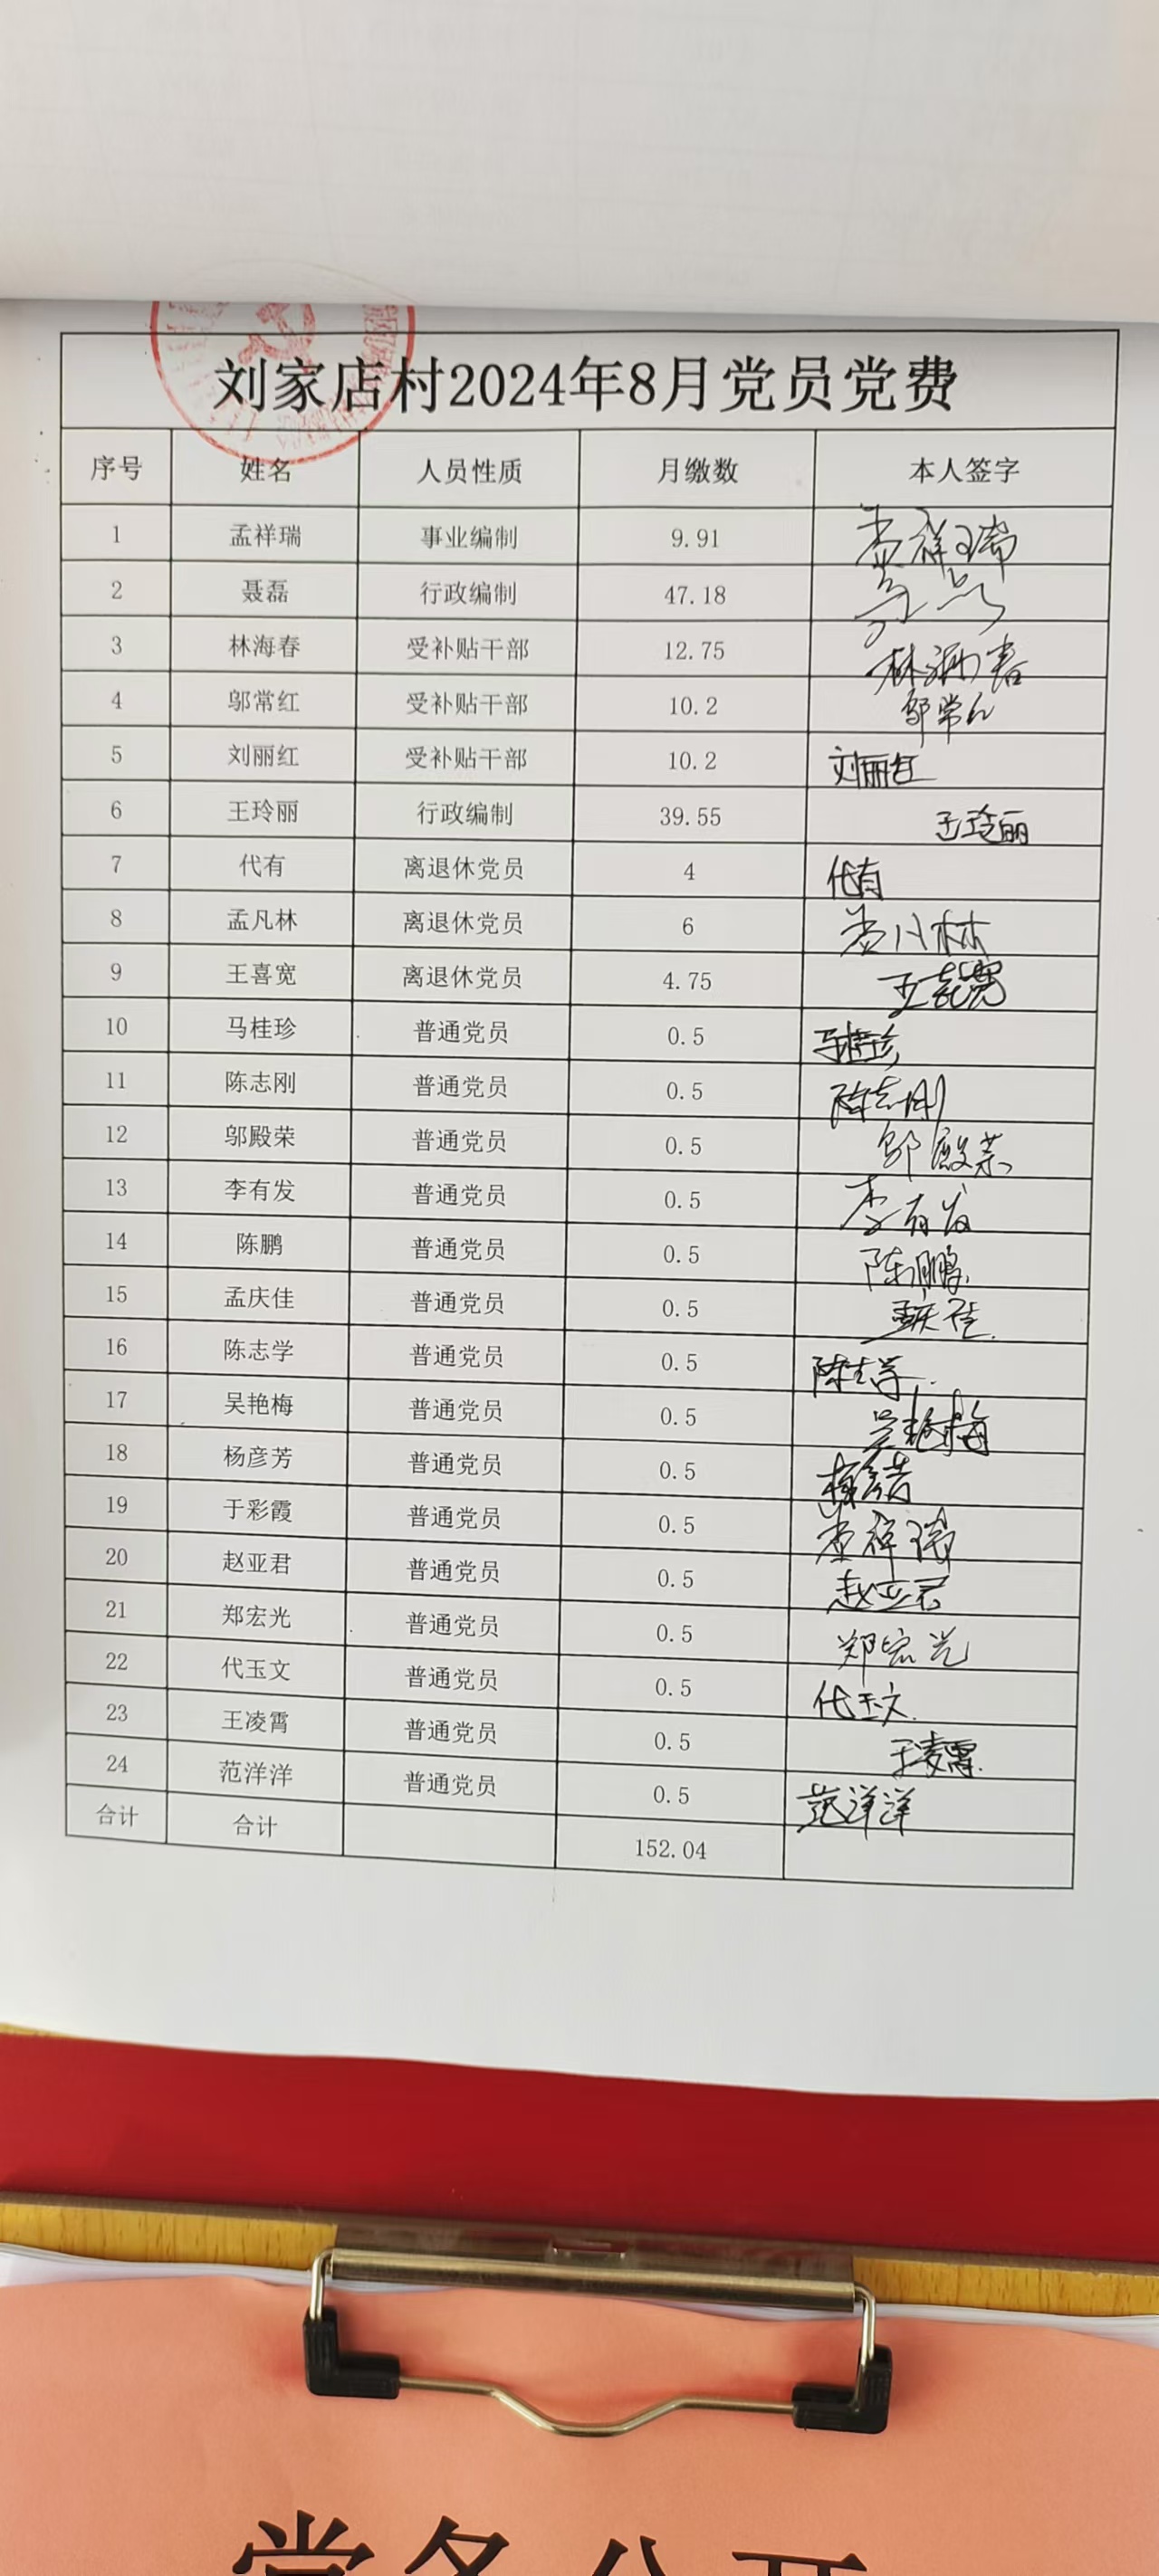 刘家店村2024年8月党员党费
序号 姓名 人员性质 月缴数 本人签字
1 孟祥瑞 事业编制 9.91 孟祥瑞
2 聂磊 行政编制 47.18
3 林海春 受补贴干部 12.75 林海春
4 邬常红 受补贴干部 10.2 邬常红
5 刘丽红 受补贴干部 10.2 刘丽红
6 王玲丽 行政编制 39.55 王玲丽
7 代有 离退休党员 4 代有
8 孟凡林 离退休党员 6 孟凡林
9 王喜宽 离退休党员 4.75 王喜宽
10 马桂珍 普通党员 0.5 马桂珍
11 陈志刚 普通党员 0.5 陈志刚
12 邬殿荣 普通党员 0.5 邬殿荣
13 李有发 普通党员 0.5 李有发
14 陈鹏 普通党员 0.5 陈鹏
15 孟庆佳 普通党员 0.5 孟庆佳
16 陈志学 普通党员 0.5 陈志学
17 吴艳梅 普通党员 0.5 吴艳梅
18 杨彦芳 普通党员 0.5 杨彦芳
19 于彩霞 普通党员 0.5 孟祥瑞
20 赵亚君 普通党员 0.5 赵亚君
21 郑宏光 普通党员 0.5 郑宏光
22 代玉文 普通党员 0.5 代玉文
23 王凌霄 普通党员 0.5 王凌霄
24 范洋洋 普通党员 0.5 范洋洋
合计 合计 152.04
党务公开